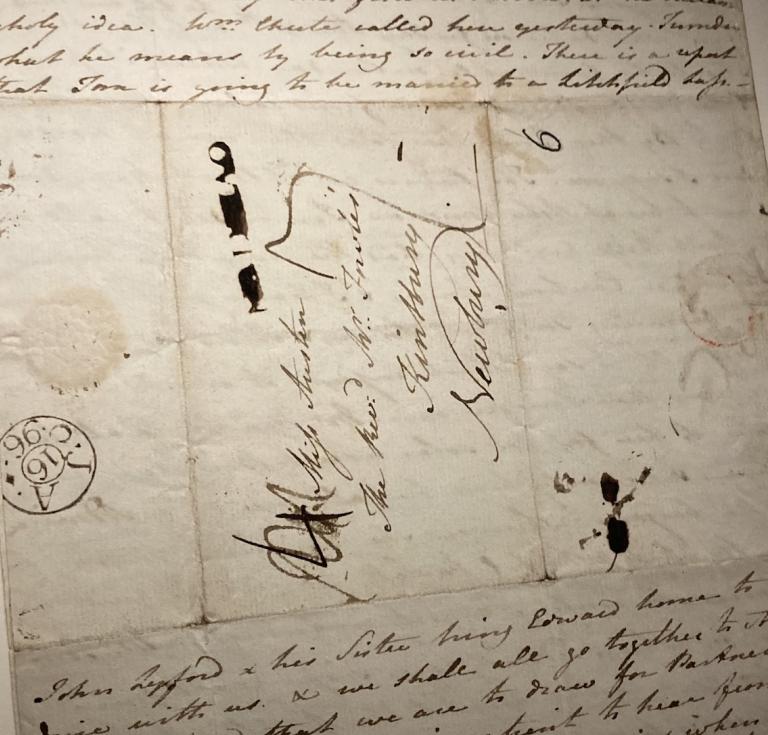 choly idea. Wm. Chute called here yesterday. I wonder
what he means by being so civil. There is a report
that Tom is going to be married to a Litchfield lass.—
6
Miss Austen
The Revd. Mr. Fowle's
Kintbury
Newbury
4
JA
16
96
John Lyford & his Sister bring Edward home to
with us, & we shall all go together to
that we are to draw for Partne
to hear from
when